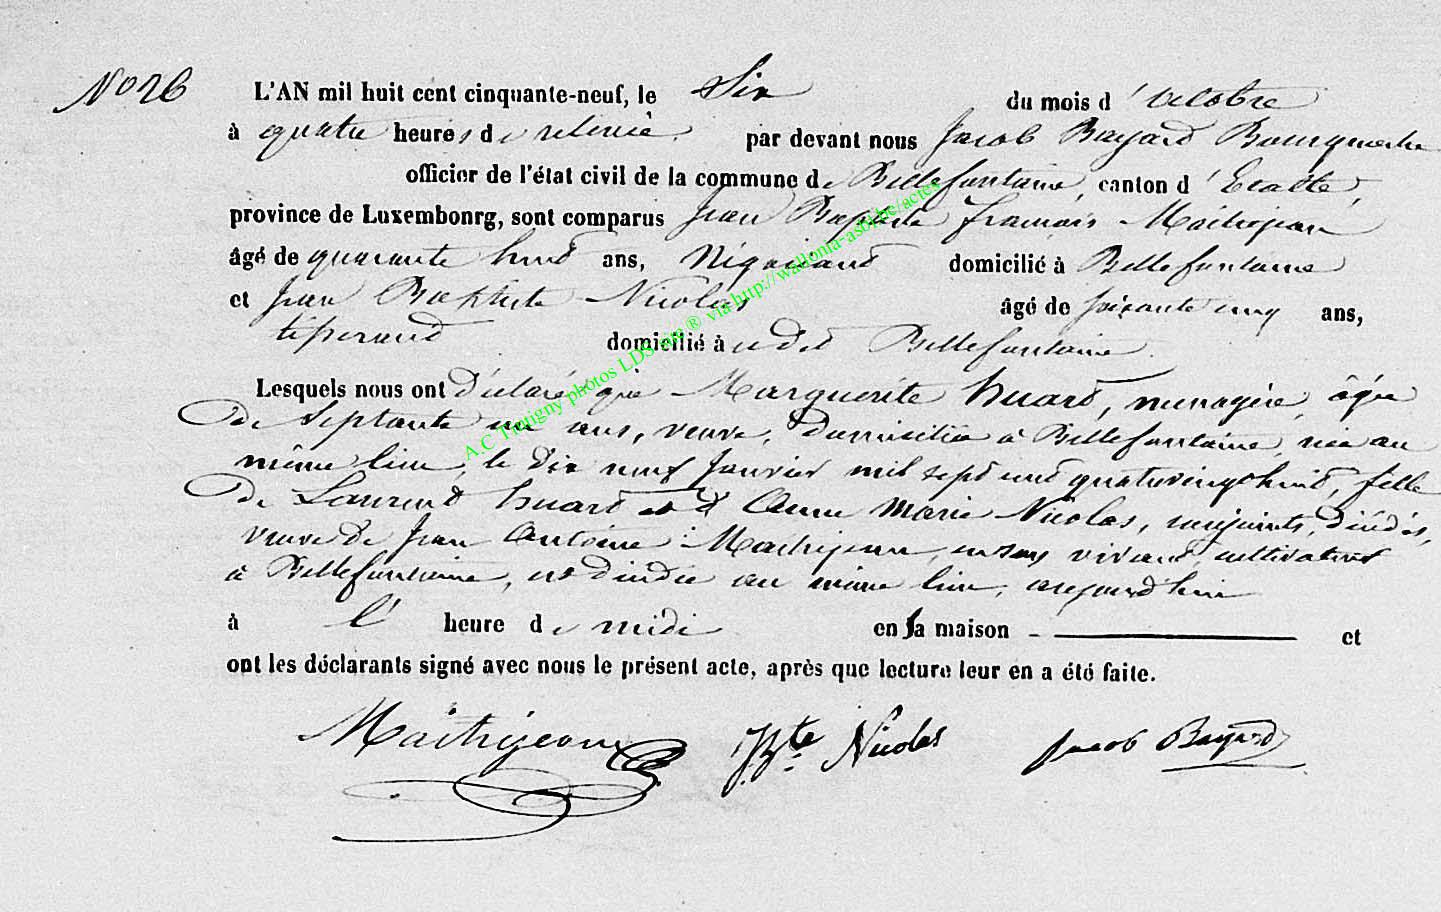 No 26
L'AN mil huit cent cinquante-neuf, le Six du mois d'octobre
à quatre heures de relevée par devant nous Jacob Bayard Bourgmestre
officier de l'état civil de la commune de Bellefontaine, canton d'Etalle,
province de Luxembonrg, sont comparus Jean Baptiste français Maitrejean
âgé de quarante huit ans, Négociant domicilié à Bellefontaine
et Jean Baptiste Nicolas âgé de soixante cinq ans,
tisserand domicilié à udit Bellefontaine.
Lesquels nous ont Déclaré que Marguerite huard, menagère, âgée
de Septante un ans, veuve, domiciliée à Bellefontaine, née au
même lieu, le dix neuf Janvier mil sept cent quatrevingt huit, fille
de Laurent huard et d'Anne Marie Nicolas, conjoints, décédés,
veuve de Jean Antoine Maitrejean, en son vivant cultivateur
à Bellefontaine, est décédée au même lieu, aujourd'hui
à l' heure de midi en sa maison et
ont les déclarants signé avec nous le présent acte, après que lecture leur en a été faite.
Maitrejean JBte Nicolas Jacob Bayard
A.C Tintigny photos LDS site ® via http://wallonia-asbl.be/actes